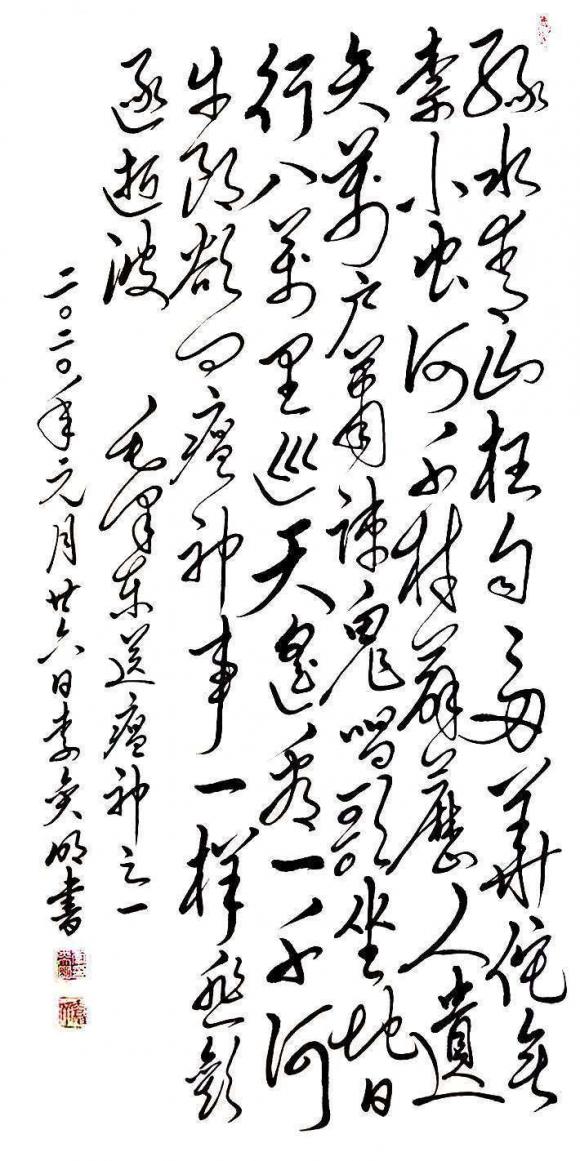 绿水青山枉自多華佗無
奈小虫何千村薜藶人遺
矢萬户蕭疎鬼唱歌坐地日
行八萬里巡天遥看一千河
牛郎欲问瘟神事一様悲歡
逐逝波
毛泽东送瘟神之一
二〇二〇年元月廿六日李明書